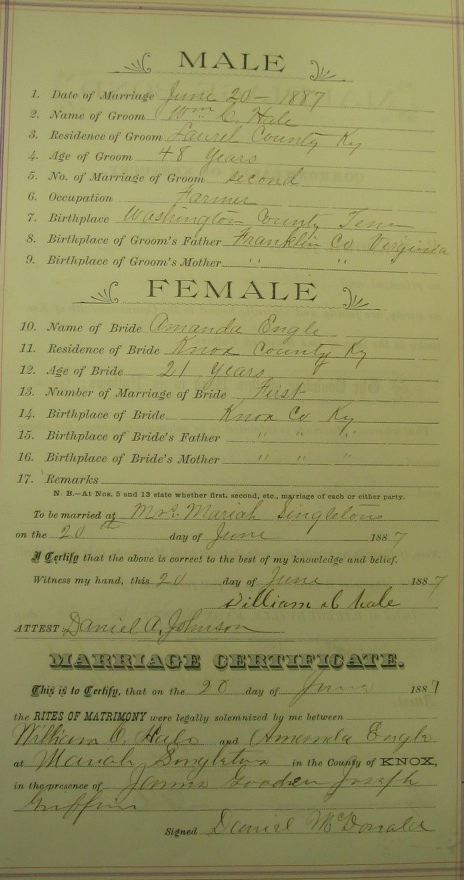 MALE
1. Date of Marriage June 20 - 1887
2. Name of Groom Wm C. Hale
3. Residence of Groom Laurel County Ky
4. Age of Groom 48 Years
5. No. of Marriage of Groom second
6. Occupation Farmer
7. Birthplace Washington County Tenn
8. Birthplace of Groom's Father Franklin Co Virginia
9. Birthplace of Groom's Mother " "
FEMALE
10. Name of Bride Amanda Engle
11. Residence of Bride Knox County Ky
12. Age of Bride 21 Years
13. Number of Marriage of Bride First
14. Birthplace of Bride Knox Co Ky
15. Birthplace of Bride's Father " " "
16. Birthplace of Bride's Mother " " "
17. Remarks
N. B.—At Nos. 5 and 13 state whether first, second, etc., marriage of each or either party.
To be married at Mrs. Mariah Singletons
on the 20th day of June 1887
I Certify that the above is correct to the best of my knowledge and belief.
Witness my hand, this 20 day of June 1887
William C Hale
ATTEST Daniel A. Johnson
MARRIAGE CERTIFICATE.
This is to Certify, that on the 20 day of June 1887
the RITES OF MATRIMONY were legally solemnized by me between
William C. and Amanda Engle
at Mariah Singleton in the County of KNOX,
in the presence of Gooden Joseph
Griffin
Signed Daniel McDonald